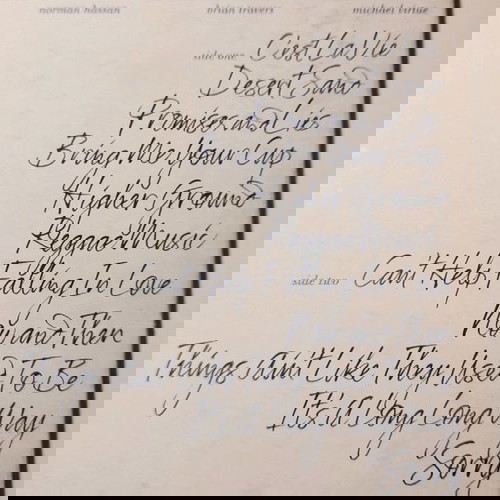 norman hassan brian travers michael virtue
side one: C'est La Vie
Desert Sand
Promises and Lies
Bring Me Your Cup
Higher Ground
Reggae Music
side two Can't Help Falling In Love
Now and Then
Things Ain't Like They Used To Be
It's A Long Long Way
Sorry